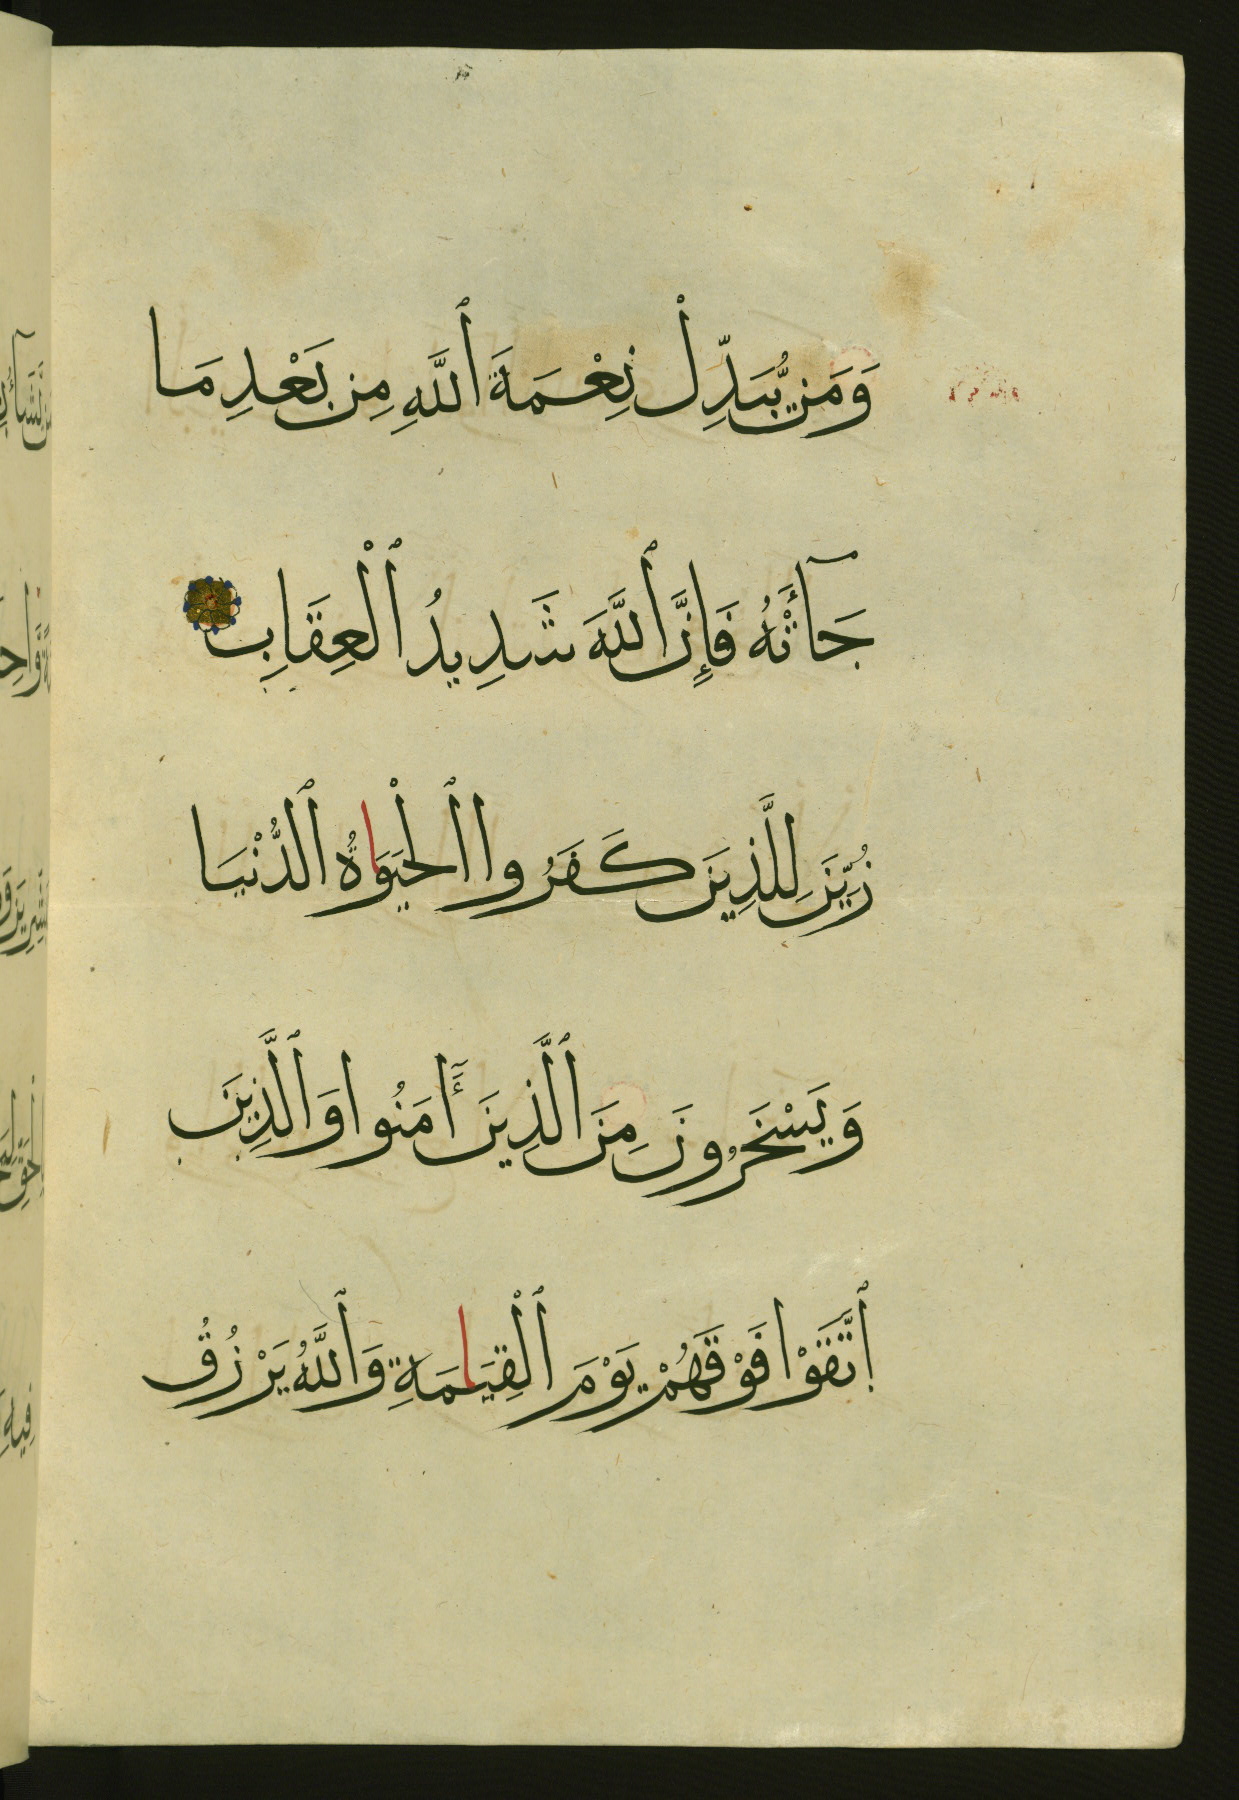 وَمَن يُّبَدِّلْ نِعْمَةَ ٱللَّهِ مِن بَعْدِ مَا
جَآءَتْهُ فَإِنَّ ٱللَّهَ شَدِيدُ ٱلْعِقَابِ
زُيِّنَ لِلَّذِينَ كَفَرُوا ٱلْحَيَوٰةُ ٱلدُّنْيَا
وَيَسْخَرُونَ مِنَ ٱلَّذِينَ ءَامَنُوا وَٱلَّذِينَ
ٱتَّقَوْا فَوْقَهُمْ يَوْمَ ٱلْقِيَامَةِ وَٱللَّهُ يَرْزُقُ